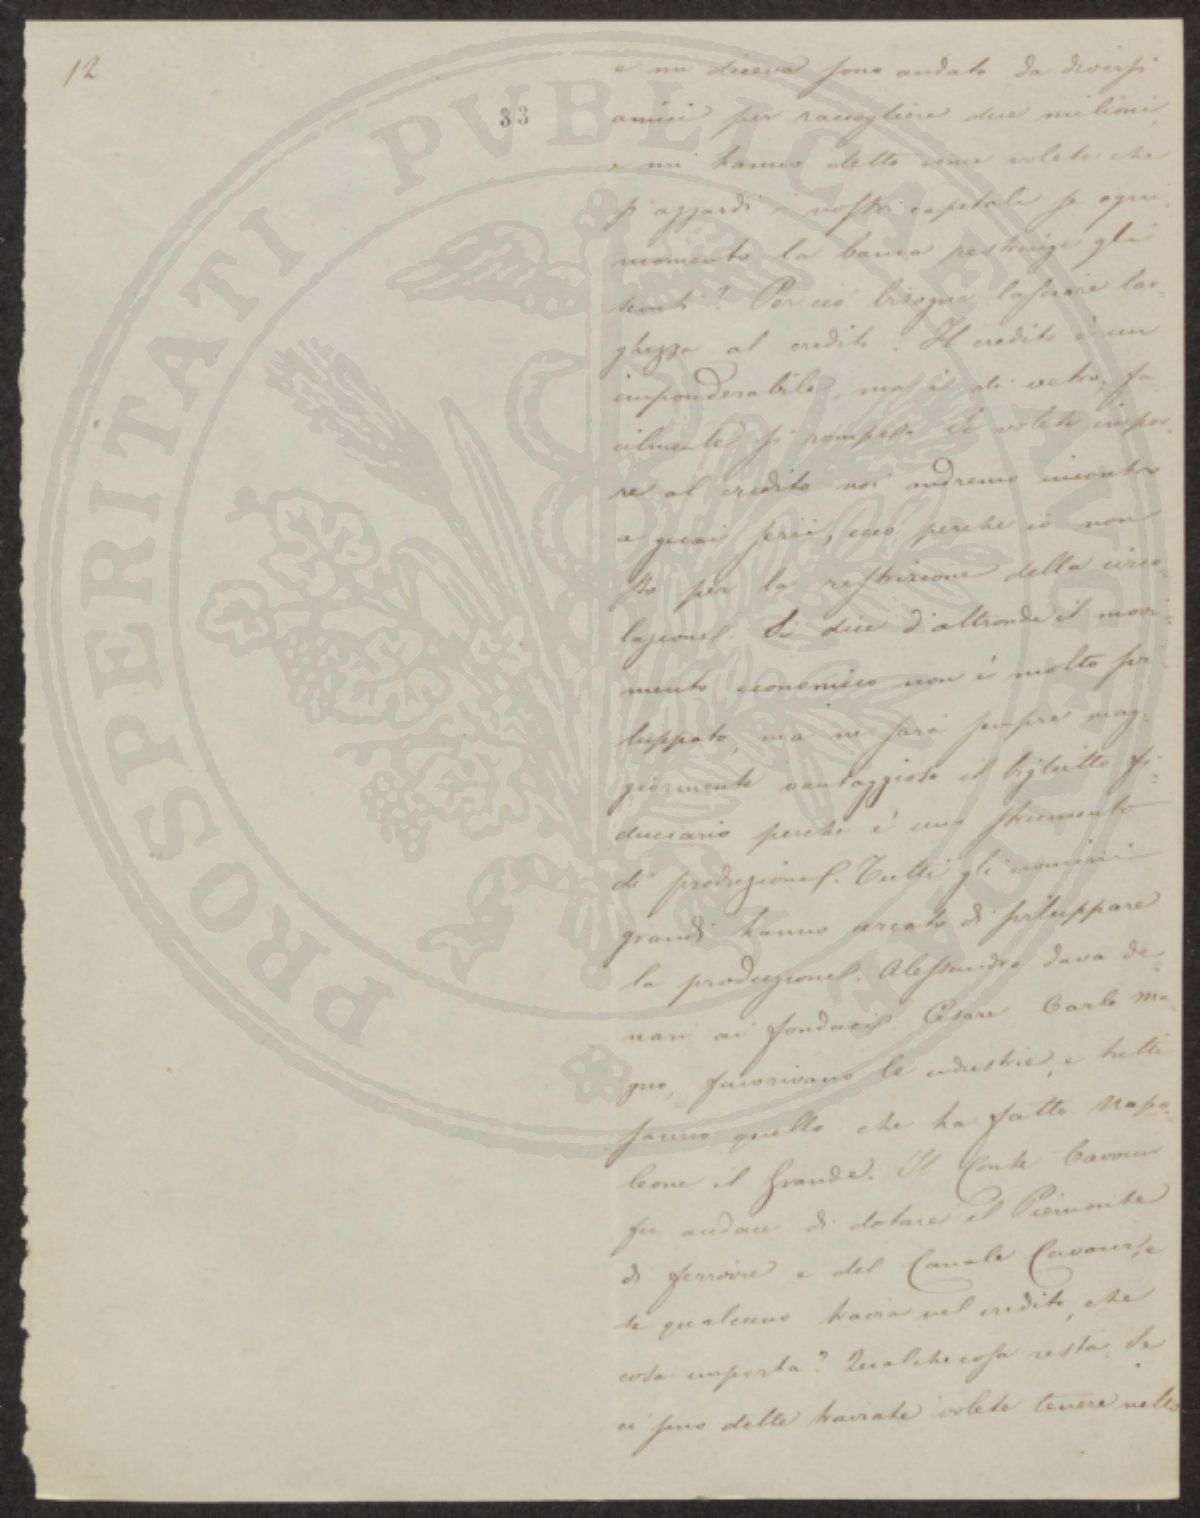 12
33
PROSPERITATI PVBLICAE AVGENDAE
e mi diceva sono andato da diversi
amici per raccogliere due milioni,
e mi hanno detto come volete che
si azzardi i nostri capitali se ogni
momento la banca restringe gli
sconti? Perciò bisogna lasciare lar-
ghezza al credito. Il credito è un
imponderabile, ma è di vetro, fa-
cilmente si rompe. Se volete impor-
re al credito noi andremo incontro
a guai serii, ecco perchè io non
sto per la restrizione della circo-
lazione. Si dice d'altronde il movi-
mento economico non è molto svi
luppato, ma ne sarà sempre mag-
giormente vantaggioso il biglietto fi-
duciario perchè è uno strumento
di produzione. Tutti gli uomini
grandi hanno cercato di sviluppare
la produzione. Alessandro dava de-
nari ai fondaci. Cesare Carlo Ma-
gno, favorivano le industrie, e tutti
sanno quello che ha fatto Napo-
leone il Grande. Il Conte Cavour
fu audace di dotare il Piemonte
di ferrovie e del Canale Cavour, e
se qualcuno travia nel credito, che
cosa importa? Qualche cosa resta. Se
ci sono delle traviate volete tenere nello